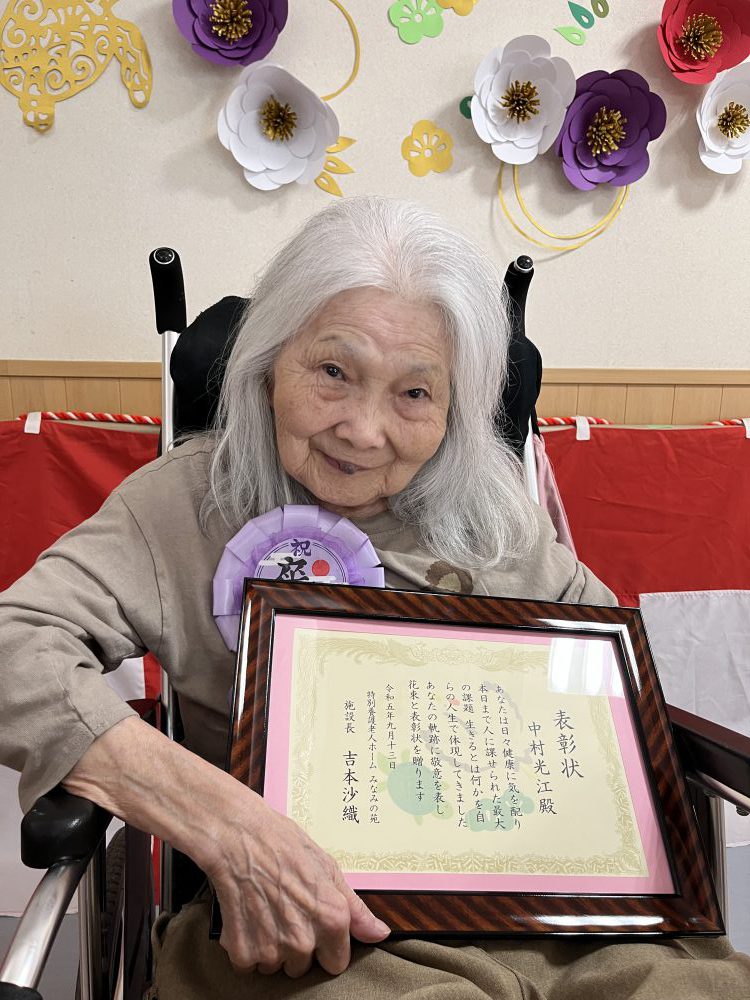 祝
表彰状
中村光江殿
あなたは日々健康に気を配り
本日まで人に課せられた最大
の課題 生きるとは何かを自
らの人生で体現してきました
あなたの軌跡に敬意を表し
花束と表彰状を贈ります
令和五年九月十三日
特別養護老人ホーム みなみの苑
施設長 吉本沙織